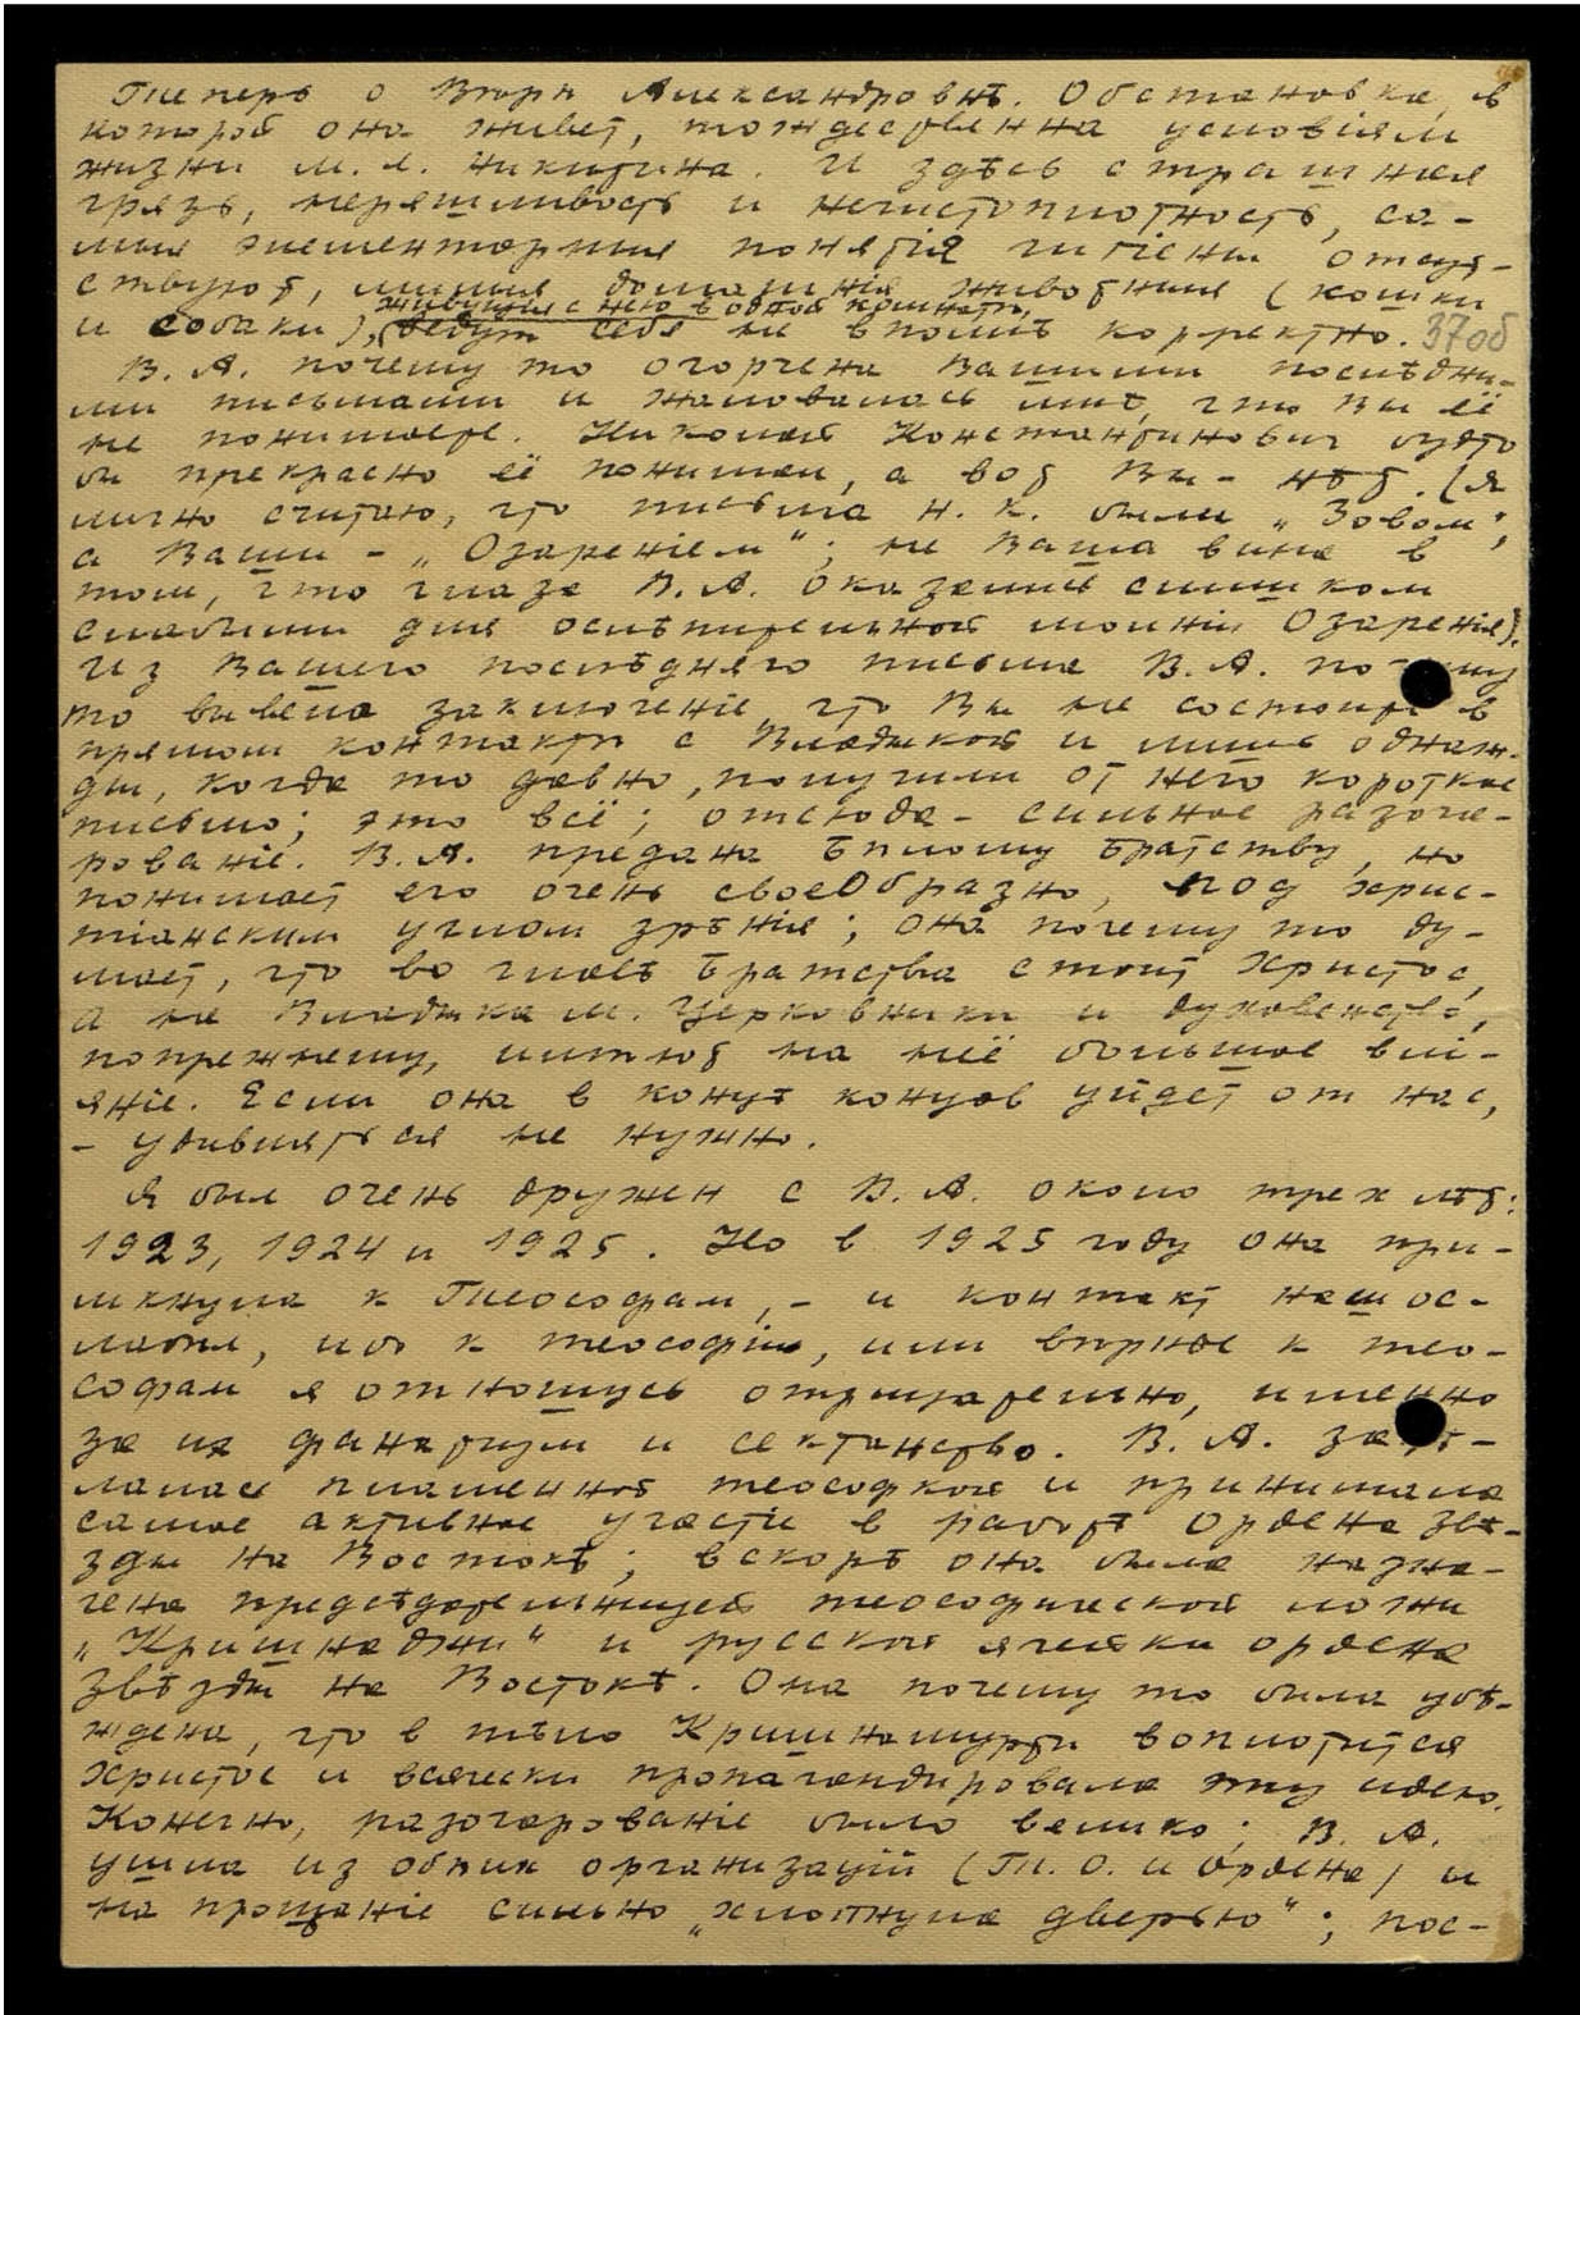 Теперь о Вѣрѣ Александровнѣ. Обстановка, в
которой она живет, тождественна условіям
жизни М. А. Никитина. И здѣсь страшная
грязь, неряшливость и нечистоплотность, са-
мыя элементарныя понятія гигіены отсут-
ствуют, милыя домашнія животныя (кошки
живущія с нею в одной комнатѣ,
и собаки), ведут себя не вполнѣ корректно. 37об
В. А. почему то огорчена Вашими послѣдни-
ми письмами и жаловалась мнѣ, что Вы её
не понимаете. Николай Константинович будто
бы прекрасно её понимал, а вот Вы - нѣт. (Я
лично считаю, что письма Н. К. были „Зовом",
а Ваши - „Озареніем"; не Ваша вина в
том, что глаза В. А. оказались слишком
слабыми для ослѣпительной молніи Озаренія).
Из Вашего послѣдняго письма В. А. по му
то вывела заключеніе, что Вы не состоите в
прямом контактѣ с Владыкой и лишь однаж-
ды, когда то давно, получили от Него короткое
письмо; это всё; отсюда - сильное разоча-
рованіе. В. А. предана Бѣлому Братству, но
понимает его очень своеобразно, под хрис-
тіанским углом зрѣнія; она почему то ду-
мает, что во главѣ Братства стоит Христос,
а не Владыка М. Церковники и духовенство,
попрежнему, имѣют на неё большое влі-
яніе. Если она в концѣ концов уйдет от нас,
- удивляться не нужно.
Я был очень дружен с В. А. около трех лѣт:
1923, 1924 и 1925. Но в 1925 году она при-
мкнула к Теософам, - и контакт наш ос-
лабѣл, ибо к теософіи, или вѣрнѣе к тео-
софам я отношусь отрицательно, именно
за их фанатизм и сектантство. В. А. 
лалась пламенной теософкой и принимала
самое активное участіе в работѣ Ордена Звѣ-
зды на Востокѣ; вскорѣ она была назна-
чена предсѣдательницей теософической ложи
„Кришнаджи" и русской ячейки ордена
Звѣзды на Востокѣ. Она почему то была убѣ-
ждена, что в тѣло Кришнамурти воплотится
Христос и всячески пропагандировала эту идею.
Конечно, разочарованіе было велико; В. А.
ушла из обѣих организацій (Т. О. и Ордена) и
на прощаніе сильно „хлопнула дверью"; пос-